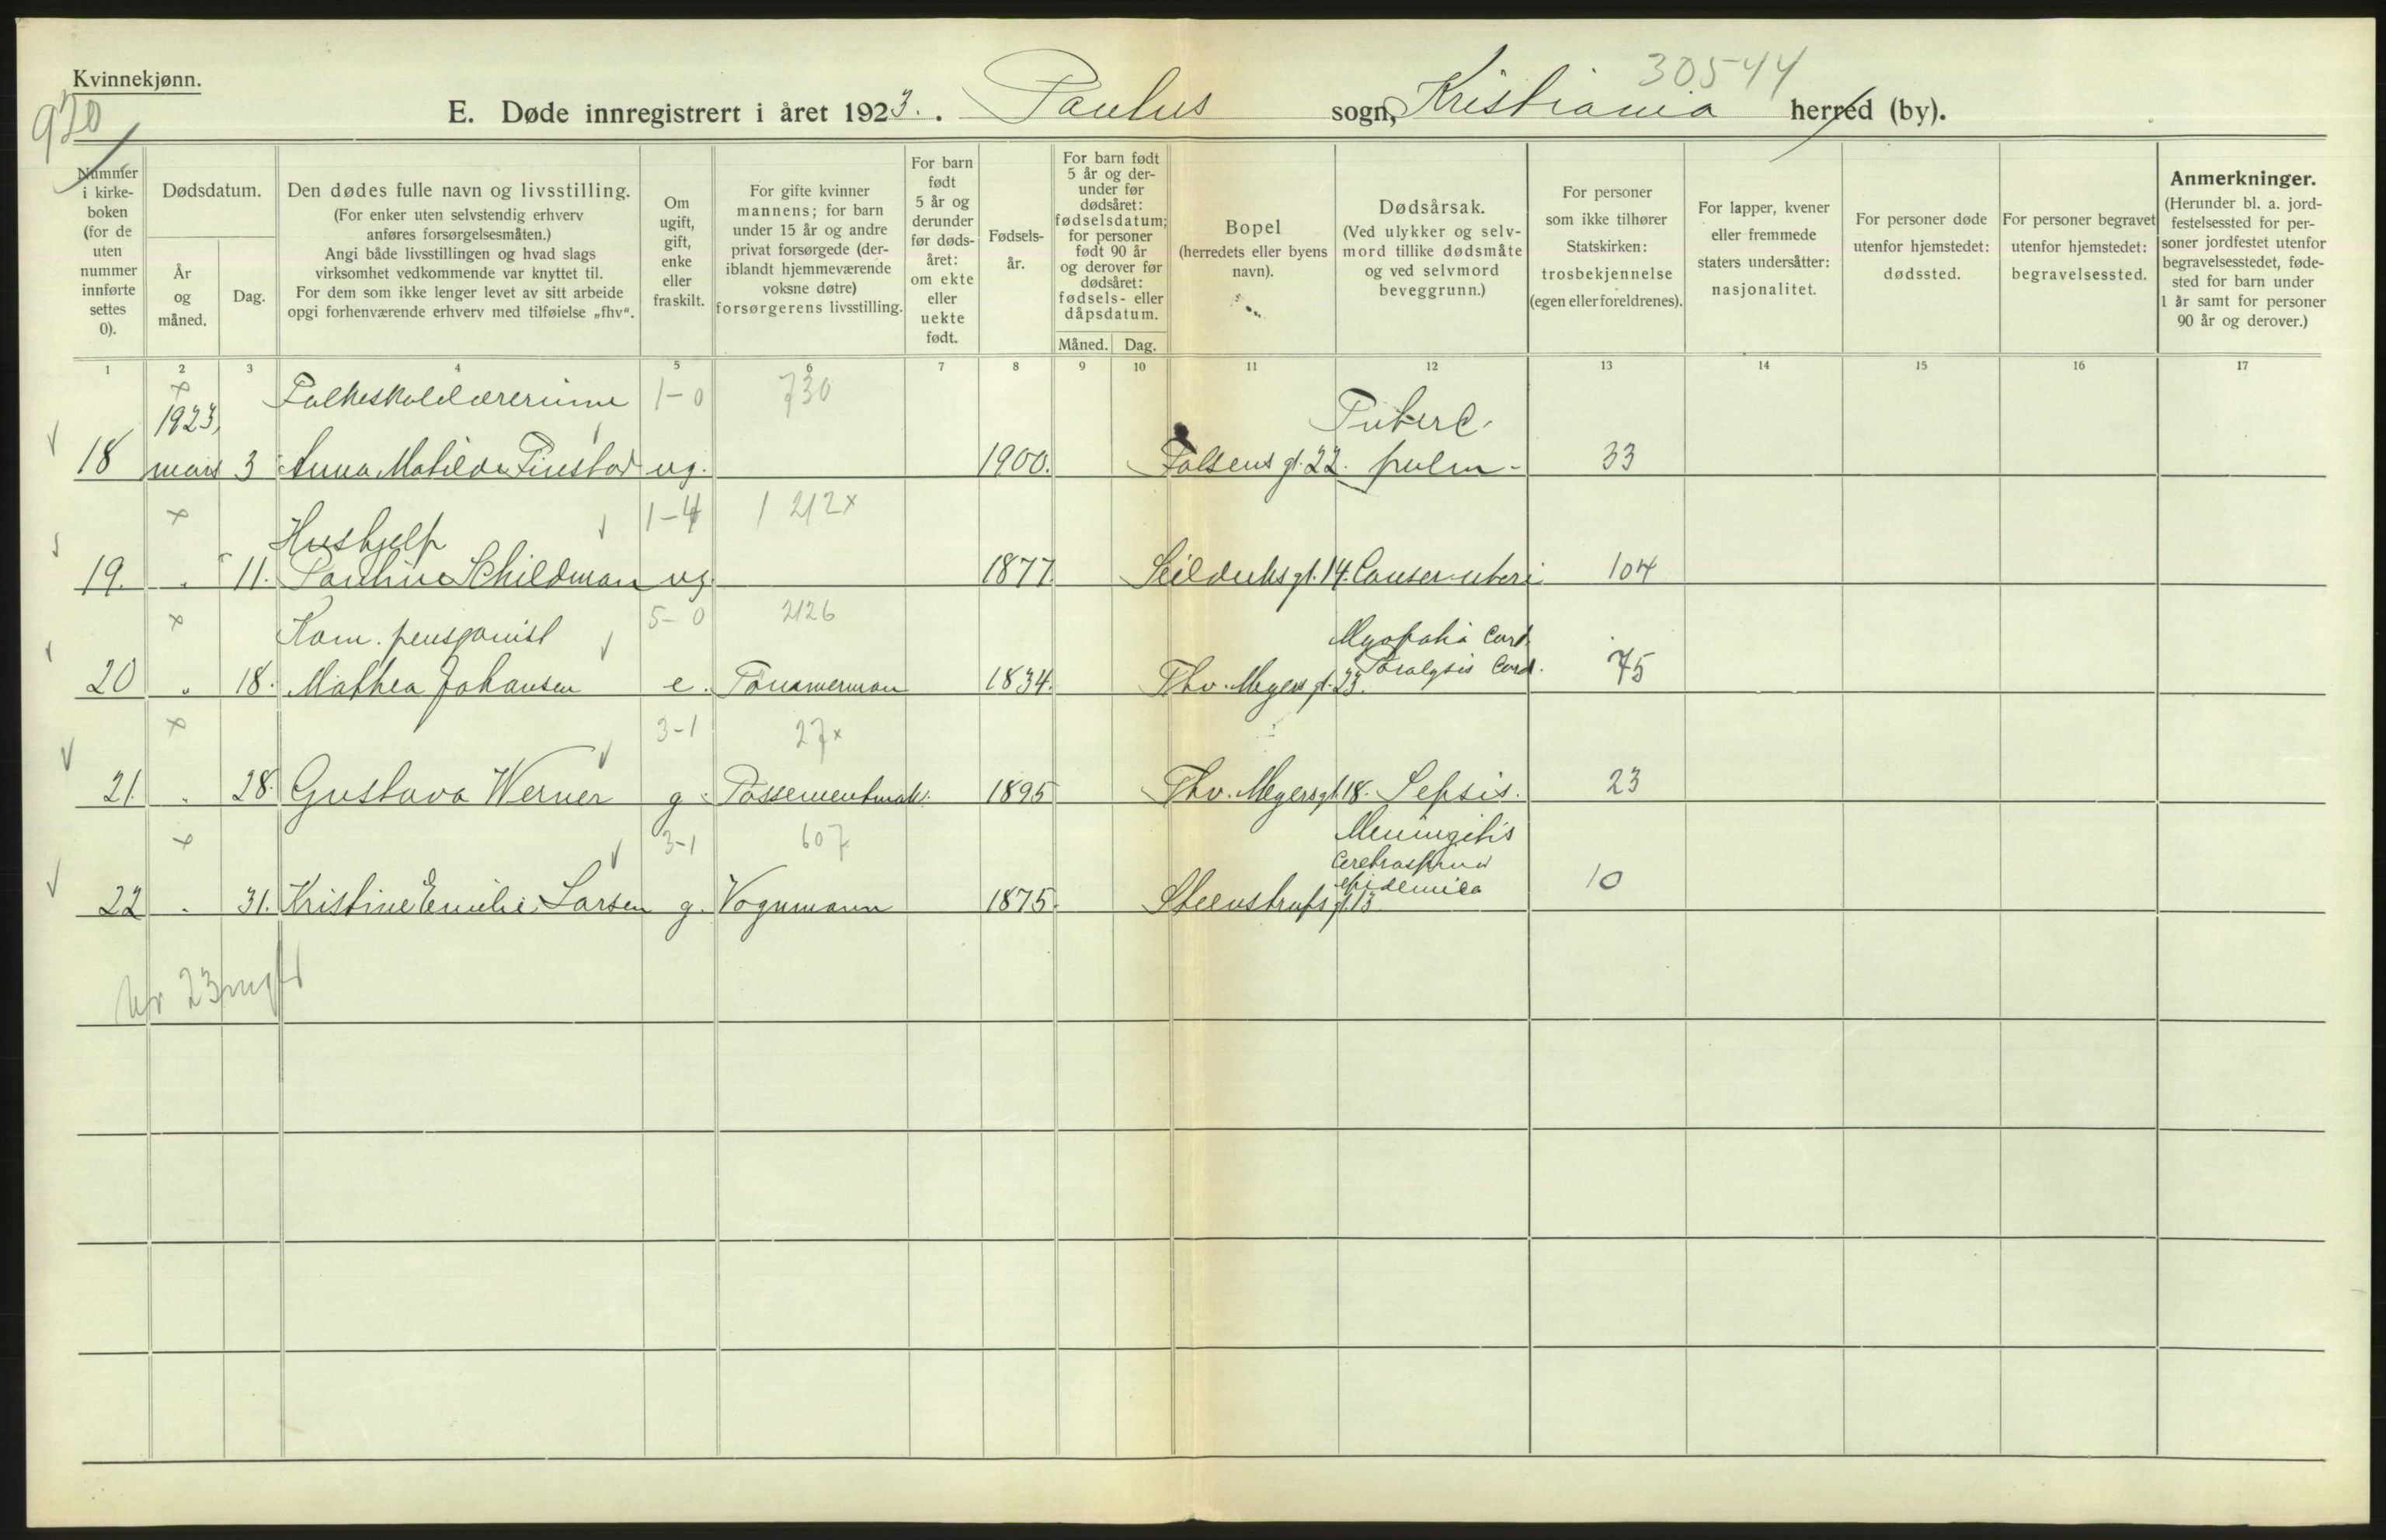 Kvinnekjønn.
970
30544
E. Døde innregistrert i året 1923. Paulus sogn, Kristiania herred (by).
Nummer i kirkeboken (for de uten nummer innførte settes 0).
Dødsdatum.
År og måned.
Dag.
Den dødes fulle navn og livsstilling.
(For enker uten selvstendig erhverv anføres forsørgelsesmåten.)
Angi både livsstillingen og hvad slags virksomhet vedkommende var knyttet til.
For dem som ikke lenger levet av sitt arbeide opgi forhenværende erhverv med tilføielse „fhv“.
Om ugift, gift, enke eller fraskilt.
For gifte kvinner mannens; for barn under 15 år og andre privat forsørgede (deriblandt hjemmeværende voksne døtre) forsørgerens livsstilling.
For barn født 5 år og derunder før dødsåret: om ekte eller uekte født.
Fødselsår.
For barn født 5 år og derunder før dødsåret: fødselsdatum; for personer født 90 år og derover før dødsåret: fødsels- eller dåpsdatum.
Måned. Dag.
Bopel
(herredets eller byens navn).
Dødsårsak.
(Ved ulykker og selvmord tillike dødsmåte og ved selvmord beveggrunn.)
For personer som ikke tilhører Statskirken: trosbekjennelse (egen eller foreldrenes).
For lapper, kvener eller fremmede staters undersåtter: nasjonalitet.
For personer døde utenfor hjemstedet: dødssted.
For personer begravet utenfor hjemstedet: begravelsessted.
Anmerkninger.
(Herunder bl. a. jordfestelsessted for personer jordfestet utenfor begravelsesstedet, fødested for barn under 1 år samt for personer 90 år og derover.)
1 2 3 4 5 6 7 8 9 10 11 12 13 14 15 16 17
1923, Folkeskolelærerinne 1-0 730 Tuberc.
18 mars 3 Anna Matilde Finstad ug. 1900. Falsens gt. 22. pulm- 33
Hushjelp 1-4 1 212x
19. " 11. Pauline Schildman ug. 1877 Seilduksgt. 14. Cancer uteri 104
Kom. pensjonist 5-0 2126 Myopatia Cord.
20 " 18. Mathea Johansen e. Tømmerman 1834. Thv. Meyers gt. 23. Paralysis Cord. 75
3-1 27x
21. " 28. Gustava Werner g. Possementmak. 1895 Thv. Meyersgt. 18. Sepsis. 23
3-1 607 Meningitis
Cerebrospinal
epidemica
22 " 31. Kristine Emilie Larsen g. Vognmann 1875. Steenstrupsgt. 13 10
Nr 23 mgl